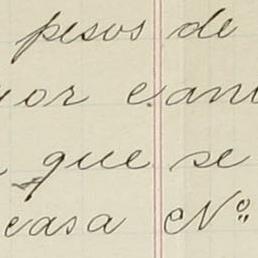 pesos de
yor can
que se
casa Nº